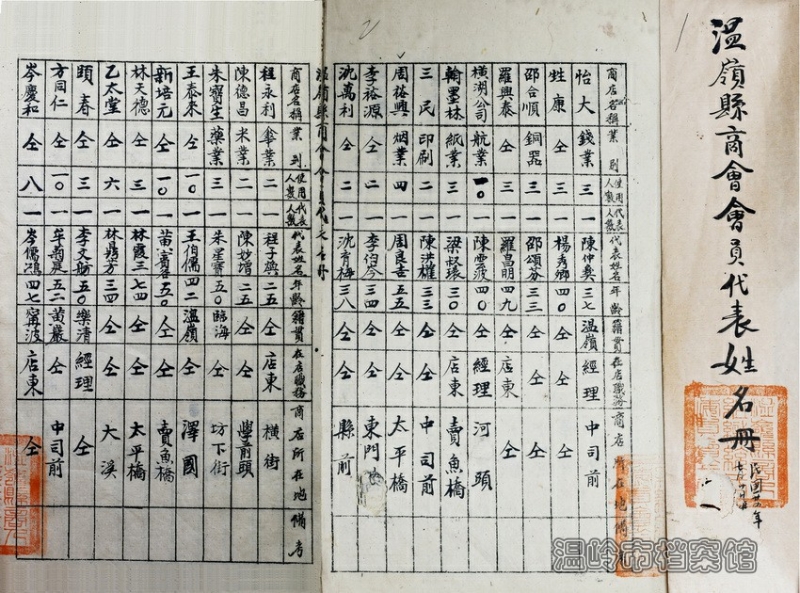 溫嶺縣商會會員代表姓名冊
商店名稱 業別 使用人數 代表人數 代表姓名 年齡 籍貫 在店職務 商店所在地 備考
怡大 錢業 三 一 陳仲奠 三七 溫嶺 經理 中司前
甡康 仝 三 一 楊秀卿 四〇 仝 仝 仝
邵合順 銅器 三 一 邵頌芬 三三 仝 仝 仝
羅興泰 仝 三 一 羅昌明 四九 仝 店東 仝
橫湖公司 航業 一〇 一 陳雲波 四〇 仝 經理 河頭
翰墨林 紙業 三 一 梁叔環 三〇 仝 店東 賣魚橋
三民 印刷 二 一 陳洪雄 三三 仝 仝 中司前
周裕興 烟業 四 一 周良吉 五五 仝 仝 太平橋
李裕源 仝 二 一 李伯今 三四 仝 仝 東門
沈萬利 仝 二 一 沈育梅 三八 仝 仝 縣前
溫嶺縣商會會員代
商店名稱 業別 使用人數 代表人數 代表姓名 年齡 籍貫 在店職務 商店所在地 備考
程永利 傘業 二 一 程子興 二五 仝 店東 橫街
陳德昌 米業 二 一 陳妙增 二五 仝 仝 學前頭
朱寶生 藥業 三 一 朱 五〇 臨海 仝 坊下街
王泰來 仝 一〇 一 王伯儒 四二 溫嶺 仝 澤國
新培元 仝 一〇 一 苗 五〇 仝 仝 賣魚橋
林天德 仝 三 一 林霞三 七四 仝 仝 太平橋
乙太堂 仝 六 一 林鼎芳 三四 仝 仝 大溪
頤春 仝 三 一 李文 五〇 樂清 經理 仝
方同仁 仝 一〇 一 牟菊晨 五二 黃巖 仝 中司前
岑慶和 仝 八 一 岑儒鴻 四七 寧波 店東 仝
温岭市档案馆